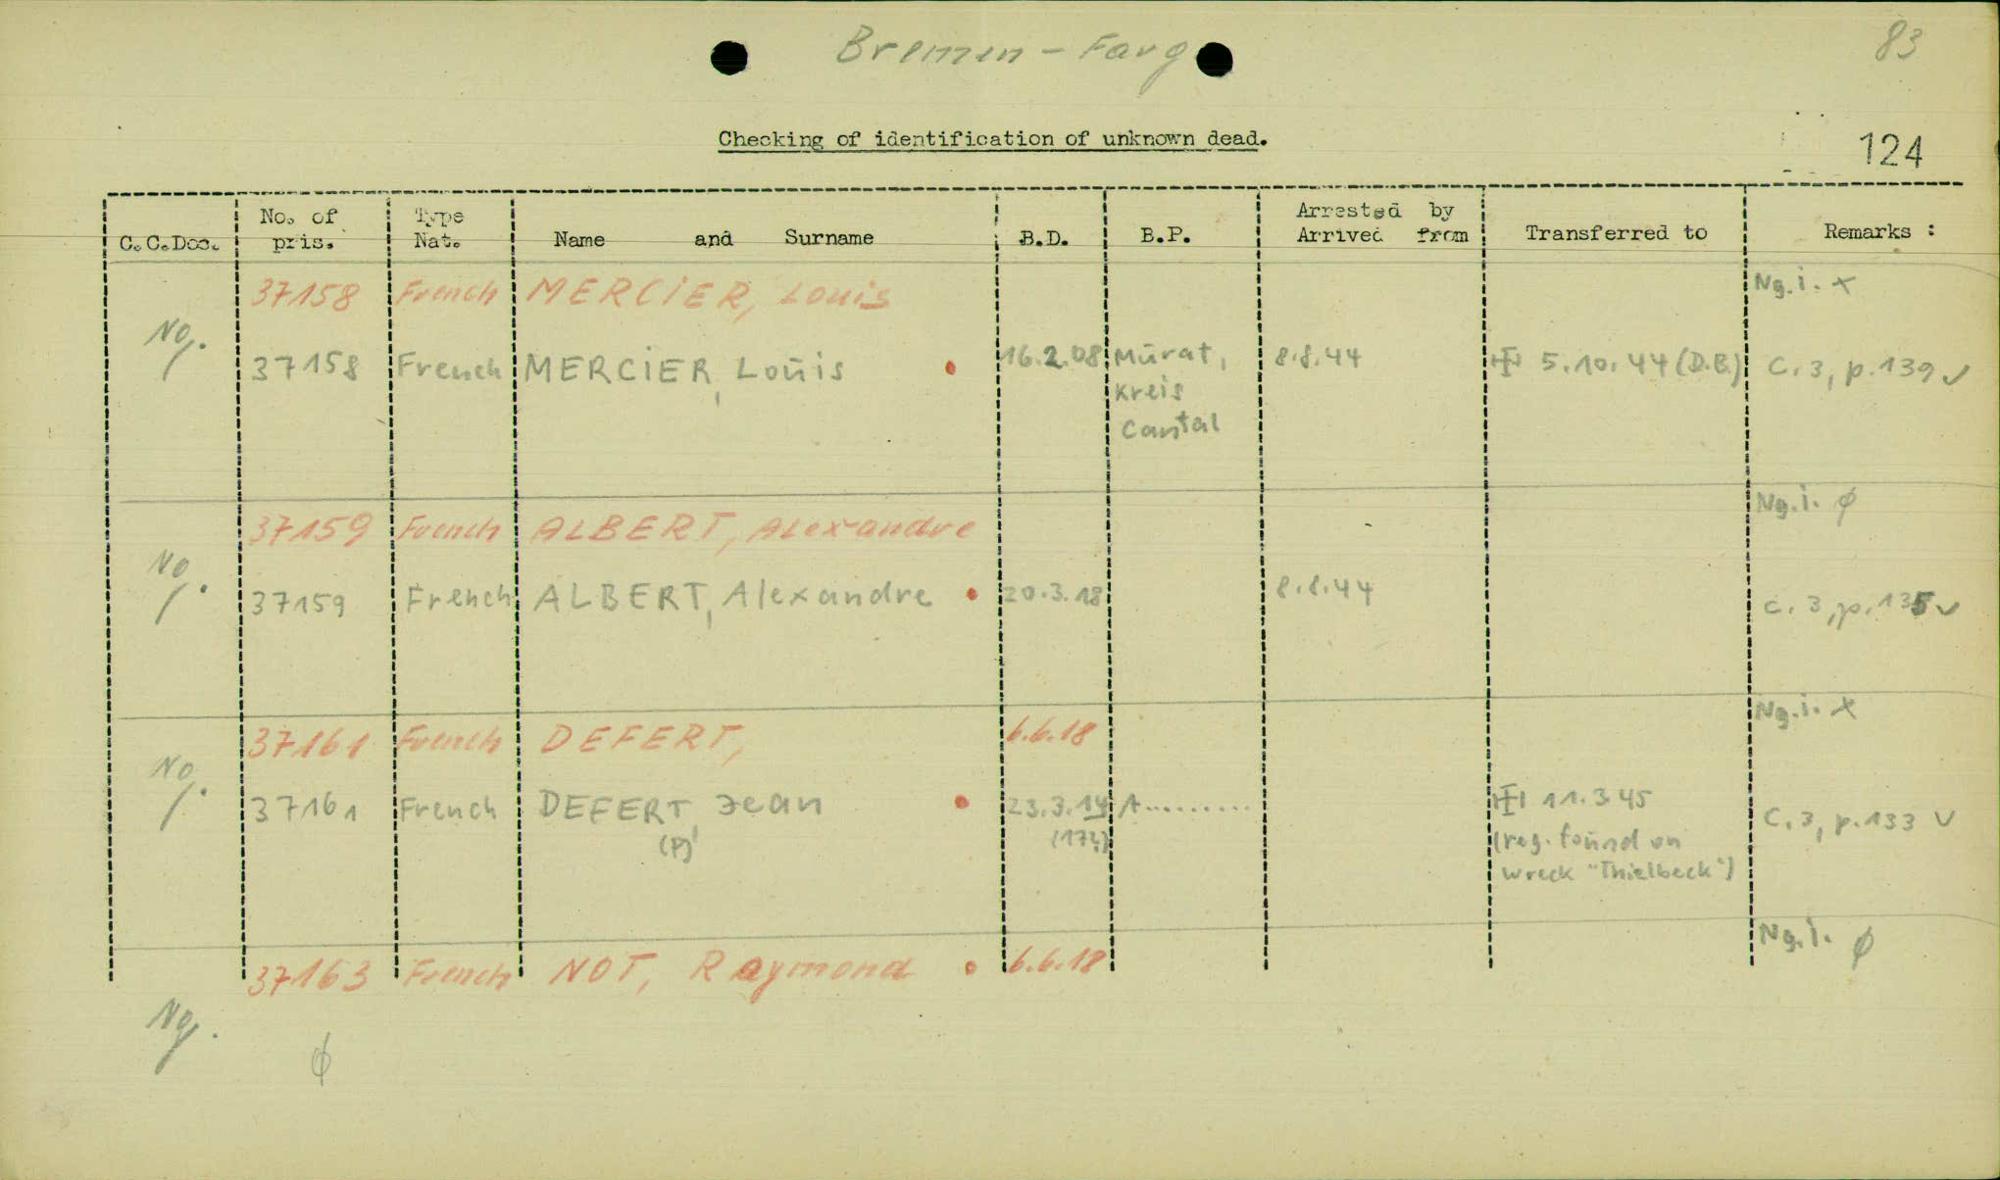 Bremen - Farg
83
Checking of identification of unknown dead.
124
C.C.Doc. No. of pris. Type Nat. Name and Surname B.D. B.P. Arrested by Arrived from Transferred to Remarks :
37158 French MERCIER, Louis Ng.i. x
Ng. 37158 French MERCIER, Louis 16.2.08 Murat, 8.8.44 5.10.44 (D.B.) C.3, p.139 ✓
Kreis
Cantal
37159 French ALBERT, Alexandre Ng.i. ∅
Ng. 37159 French ALBERT, Alexandre 20.3.18 8.8.44 C.3, p.135 ✓
37161 French DEFERT, 6.6.18 Ng.i. x
Ng. 37161 French DEFERT, Jean 23.3.14 A......... 11.3.45 C.3, p.133 ✓
(P) (17?) (reg. found on
wreck "Thielbeck")
37163 French NOT, Raymond 6.6.18 Ng.i. ∅
Ng. ∅